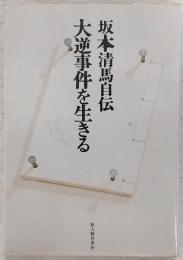 坂本清馬自伝
大逆事件を生きる
新人物往来社